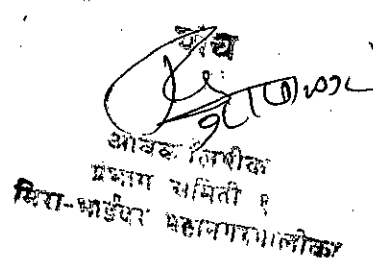 पोच
आवक लिपीक
प्रभाग समिती १
मिरा-भाईंदर महानगरपालीका